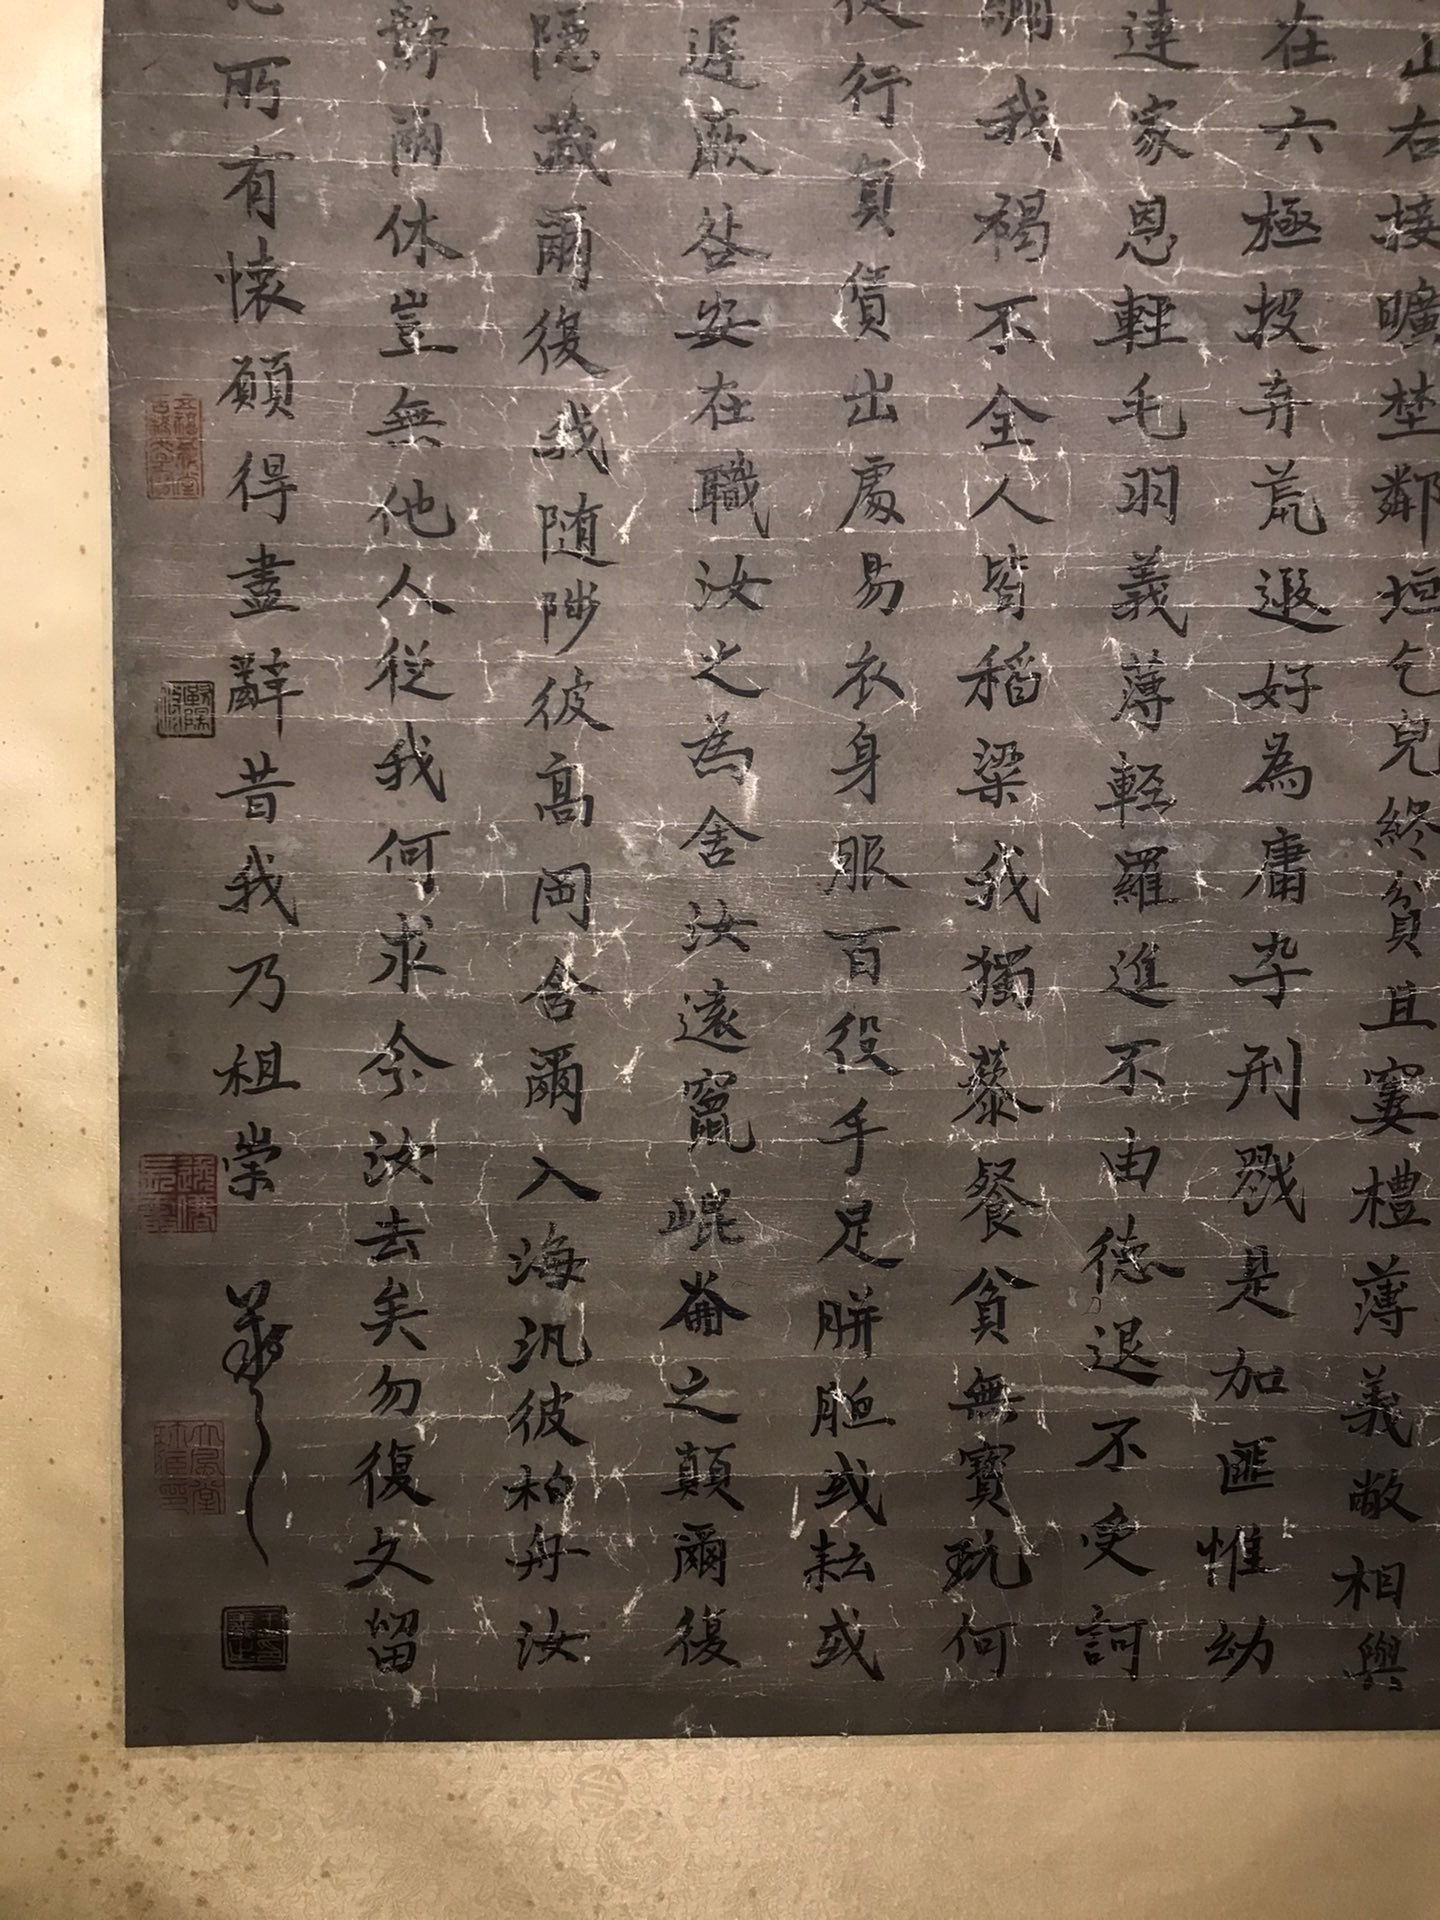 山右接曠埜鄰垣乞兒終貧且窶禮薄義敝相與
在六極投弃荒遐好為庸卒刑戮是加匪惟幼
達家恩輕毛羽義薄輕羅進不由德退不受訶
我褐不全人皆稻粱我獨藜餐貧無寶玩何
行負賃出處易衣身服百役手足胼胝或耘或
遲厥咎安在職汝之為舍汝遠竄崐崙之顛爾復
隱藏爾復我隨陟彼高岡舍爾入海汎彼柏舟汝
爾休豈無他人從我何求今汝去矣勿復久留
所有懷願得盡辭昔我乃祖崇